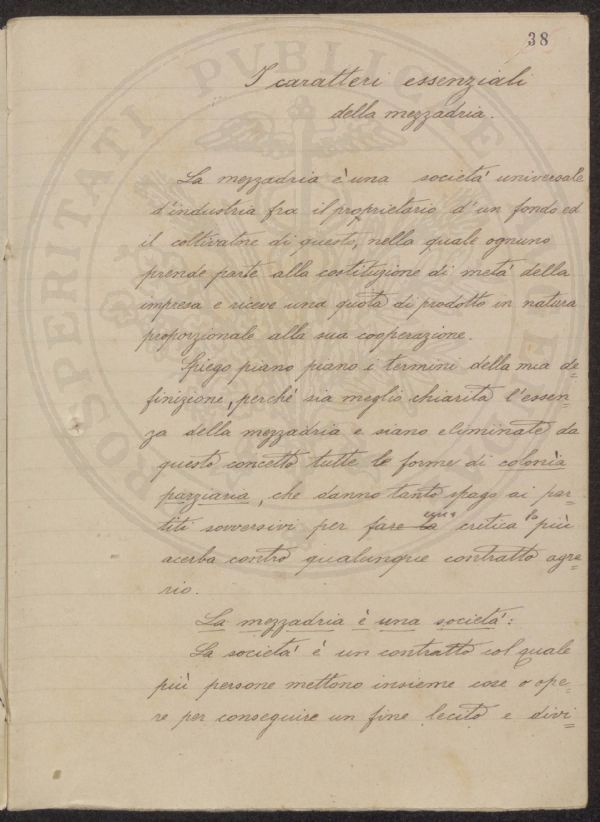 38
I caratteri essenziali
della mezzadria.
La mezzadria è una società universale
d'industria fra il proprietario d'un fondo ed
il coltivatore di questo, nella quale ognuno
prende parte alla costituzione di metà della
impresa e riceve una quota di prodotto in natura
proporzionale alla sua cooperazione.
Spiego piano piano i termini della mia de=
finizione, perchè sia meglio chiarita l'essen=
za della mezzadria e siano eliminate da
questo concetto tutte le forme di colonia
parziaria, che danno tanto spago ai par=
titi sovversivi per fare una critica la più
acerba contro qualunque contratto agra=
rio.
La mezzadria è una società:
La società è un contratto col quale
più persone mettono insieme cose o ope=
re per conseguire un fine lecito e divi=